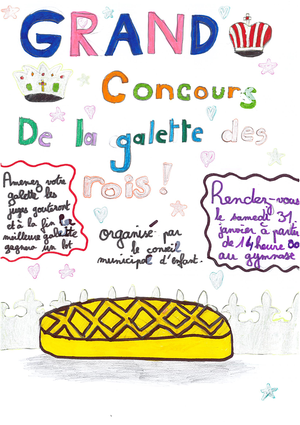 GRAND
Concours
De la galette des
rois !
Amenez votre
galette les
juges gouteront
et à la fin la
meilleure galette
gagnera un lot
organisé par
le conseil
municipal d'enfant.
Rendez-vous
le samedi 31
janvier à partir
de 14 heure 00
au gymnase